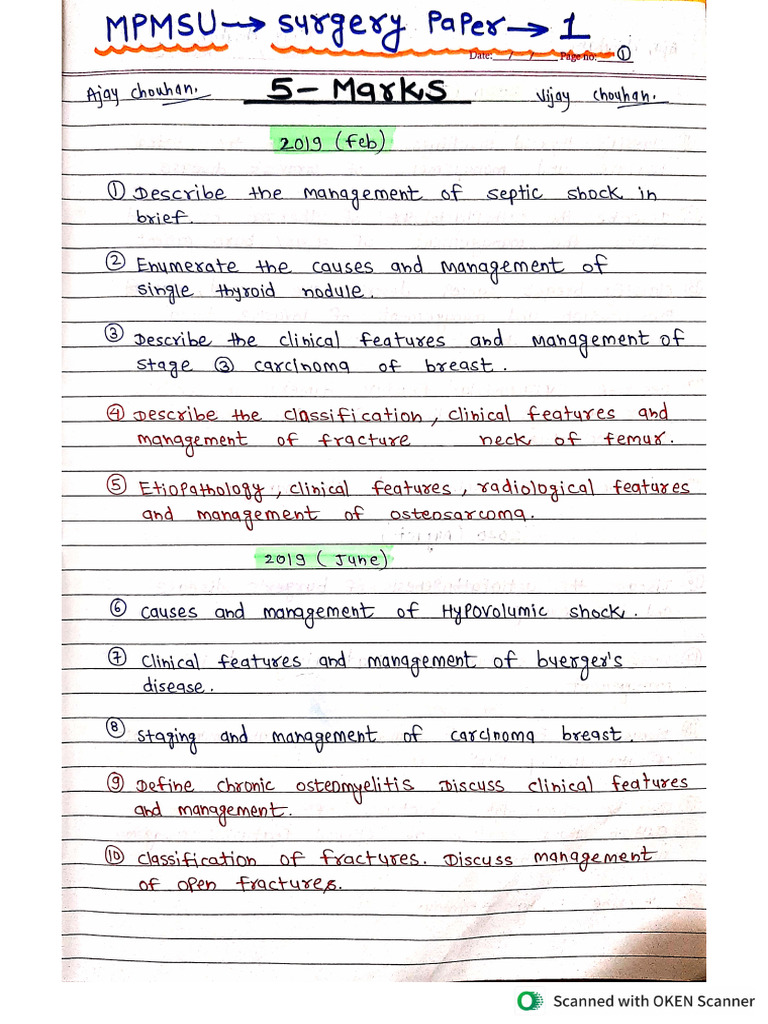 MPMSU → surgery Paper → 1
Date: / / Page no: ①
Ajay chouhan. 5-Marks Vijay chouhan.
2019 (feb)
① Describe the management of septic shock in
brief.
② Enumerate the causes and management of
single thyroid nodule.
③ Describe the clinical features and management of
stage ③ carcinoma of breast.
④ Describe the classification, clinical features and
management of fracture neck of femur.
⑤ Etiopathology, clinical features, radiological features
and management of osteosarcoma.
2019 (June)
⑥ causes and management of Hypovolumic shock.
⑦ clinical features and management of byerger's
disease.
⑧ staging and management of carcinoma breast.
⑨ Define chronic osteomyelitis Discuss clinical features
and management.
⑩ classification of fractures. Discuss management
of open fractures.
Scanned with OKEN Scanner